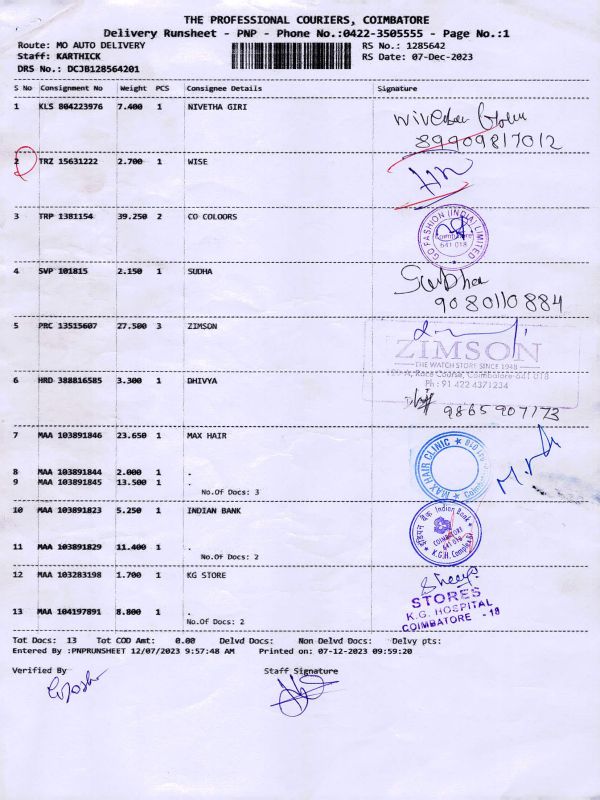 THE PROFESSIONAL COURIERS, COIMBATORE
Delivery Runsheet - PNP - Phone No.:0422-3505555 - Page No.:1
Route: MO AUTO DELIVERY RS No.: 1285642
Staff: KARTHICK RS Date: 07-Dec-2023
DRS No.: DCJB128564201
S No Consignment No Weight PCS Consignee Details Signature
1 KLS 804223976 7.400 1 NIVETHA GIRI
89909817012
2 TRZ 15631222 2.700 1 WISE
3 TRP 1381154 39.250 2 CO COLOORS
GO FASHION (INDIA) LIMITED
Coimbatore
641 018
4 SVP 101815 2.150 1 SUDHA
Sudha
9080110884
5 PRC 13515607 27.500 3 ZIMSON
ZIMSON
THE WATCH STORE SINCE 1948
Race Course, Coimbatore-641 018
Ph : 91 422 4371234
6 HRD 388816585 3.300 1 DHIVYA
9865907173
7 MAA 103891846 23.650 1 MAX HAIR
MAX HAIR CLINIC
8 MAA 103891844 2.000 1 .
9 MAA 103891845 13.500 1 .
No.Of Docs: 3
10 MAA 103891823 5.250 1 INDIAN BANK
इंडियन बैंक Indian Bank
COIMBATORE
641 018
K.G.H. Complex
11 MAA 103891829 11.400 1 .
No.Of Docs: 2
12 MAA 103283198 1.700 1 KG STORE
STORES
K.G. HOSPITAL
COIMBATORE - 18
13 MAA 104197891 8.800 1 .
No.Of Docs: 2
Tot Docs: 13 Tot COD Amt: 0.00 Delvd Docs: Non Delvd Docs: Delvy pts:
Entered By :PNPRUNSHEET 12/07/2023 9:57:48 AM Printed on: 07-12-2023 09:59:20
Verified By Staff Signature